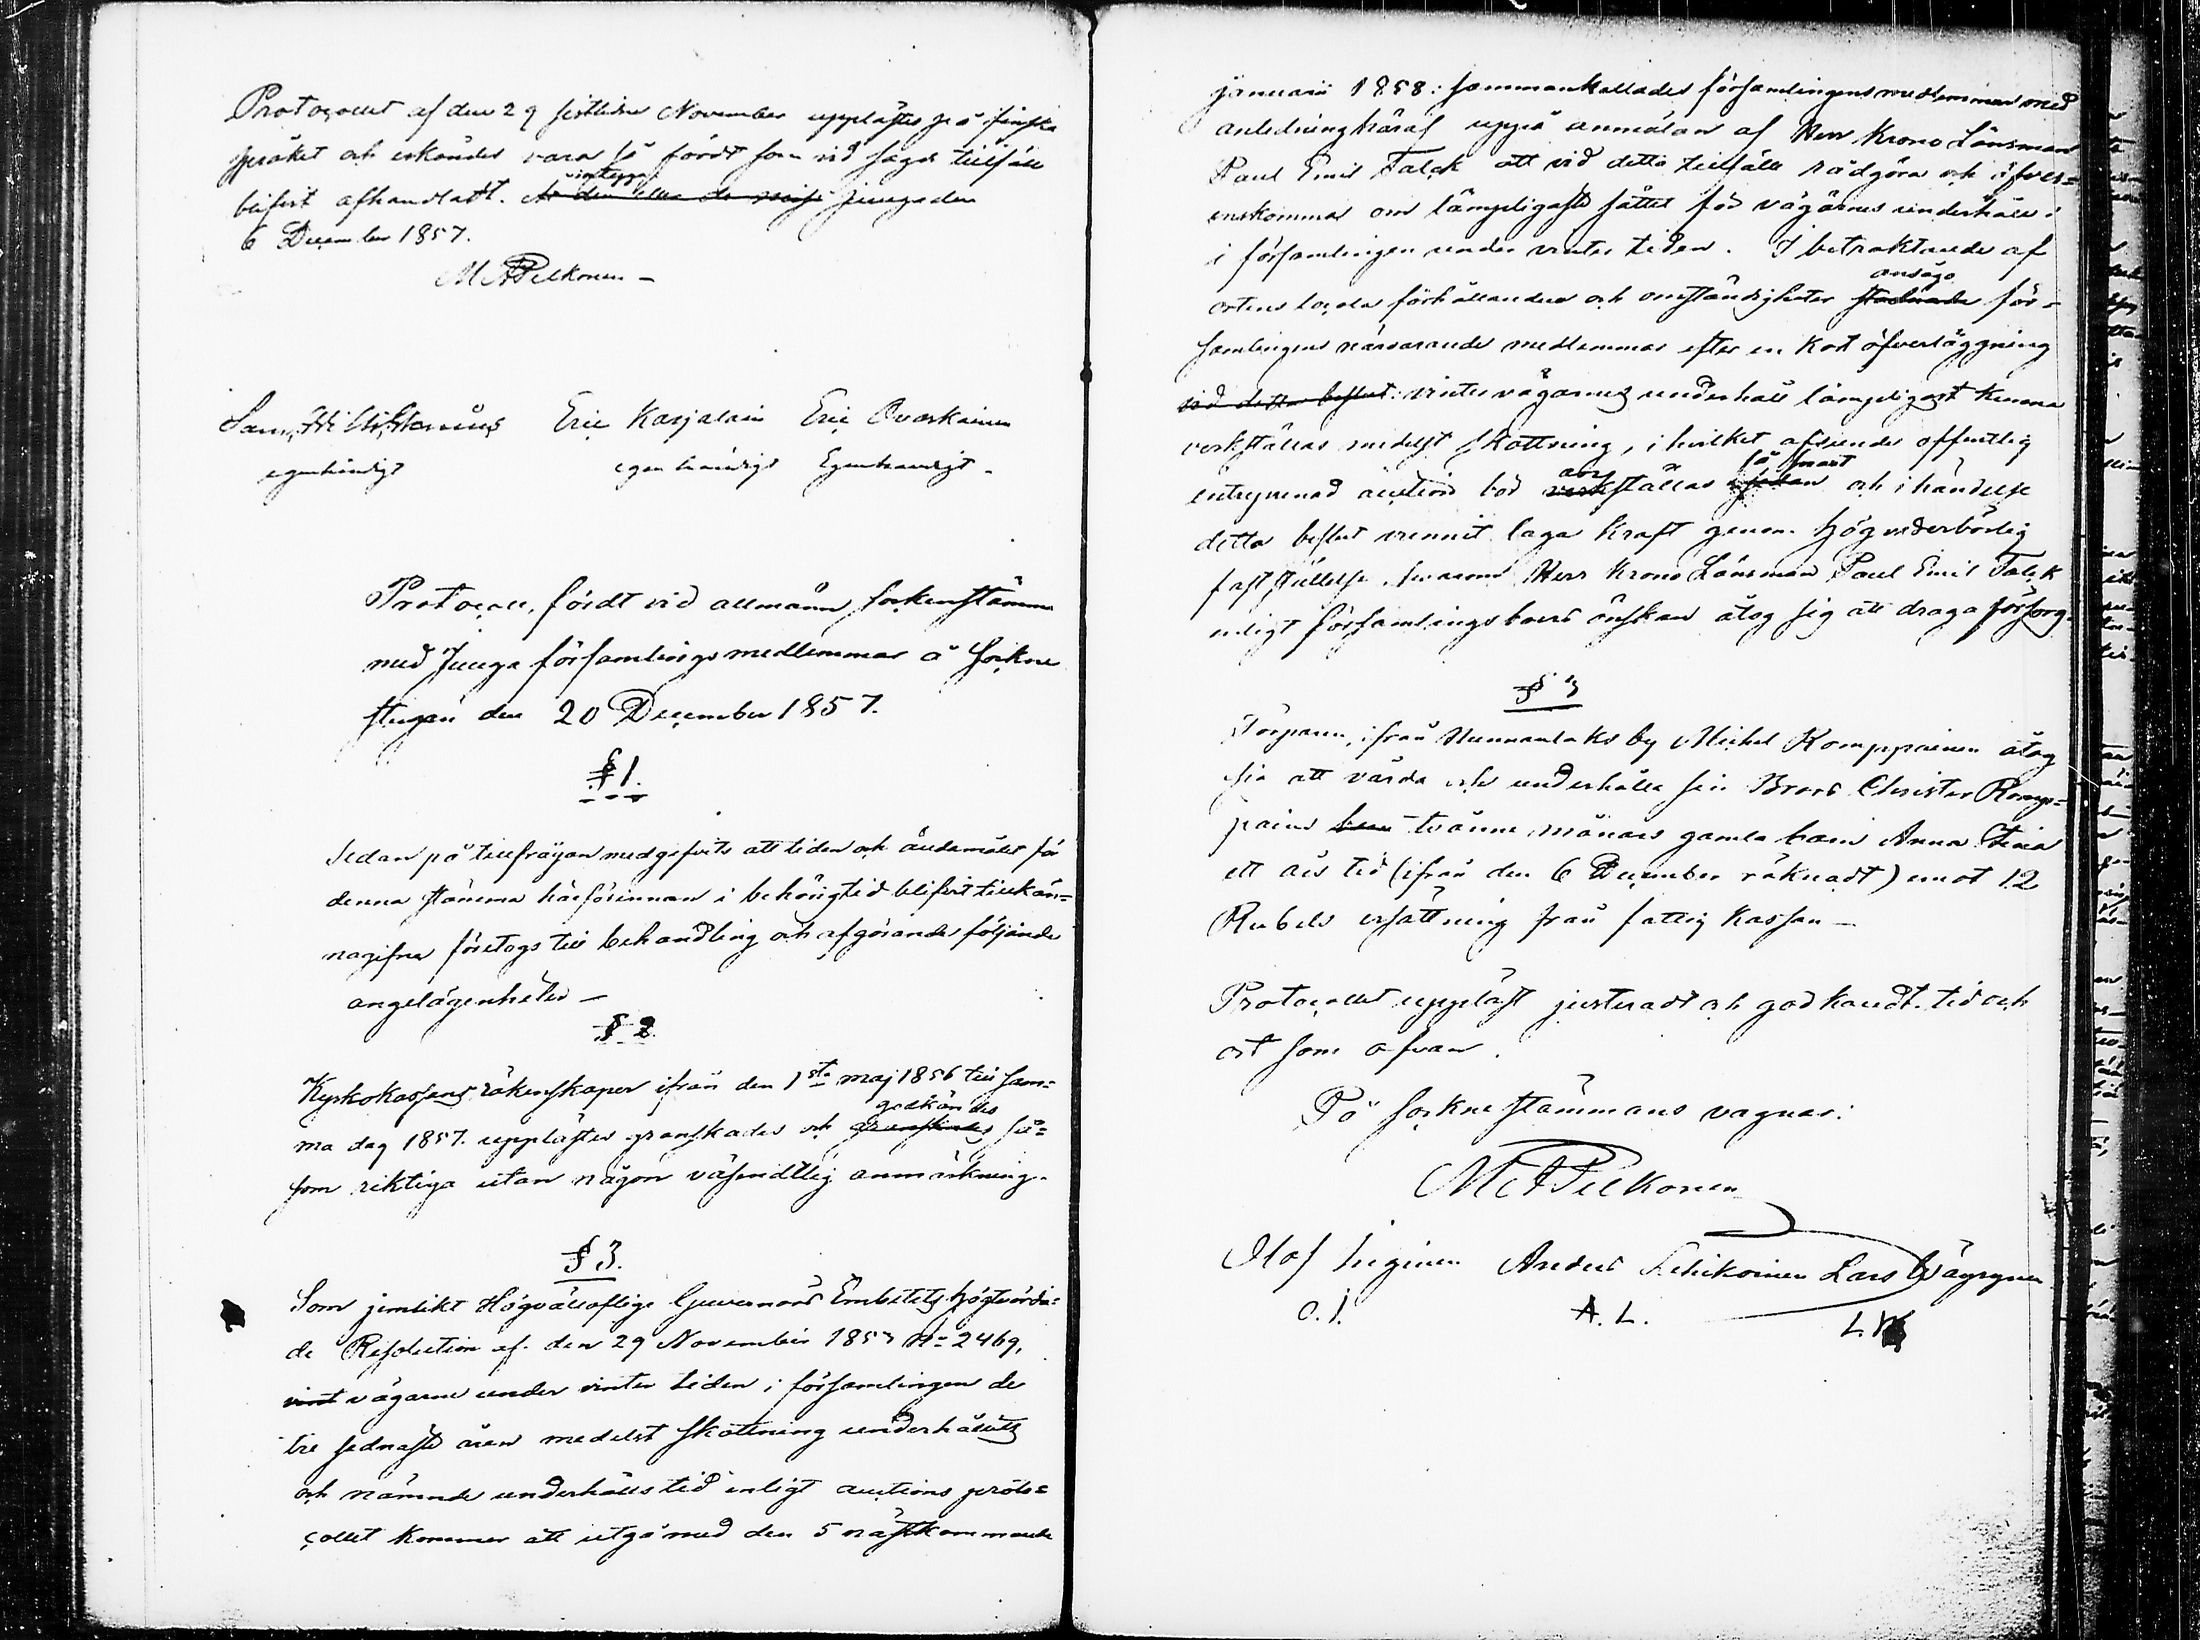 Protocollet af den 29 sistlidne November upplästes på finska
språket och erkändes vara så fördt som vid sagde tillfälle
blifvit afhandladt. intygga Juuga den
6 December 1857.
M A Pelkonen –
Eric Karjalain Eric Ovaskainen
egenhändigt egenhändigt Egenhändigt –
Protocoll, fördt vid allmänn sockenstämma
med Juuga församlings medlemmar å Sockne
stugan den 20 December 1857.
§ 1.
Sedan på tillfrågan medgifvits att tiden och ändamålet för
denna stämma härförinnan i behörig tid blifvit tillkän=
nagifne företogs till behandling och afgörande följande
angelägenheter –
§ 2.
Kyrkokassans räkenskaper ifrån den 1sta maj 1856 till sam=
ma dag 1857. upplästes granskades och godkändes så=
som riktiga utan någon väsendtlig anmärkning.
§ 3.
Som jemlikt Högvällofliga Guvernörs Embetets högtvörda=
de Resolution af den 29 November 1853 No 2469,
vint vägarne under vinter tiden i församlingen de
tre sednaste åren medelst skottning underhållits
och nämnde underhålls tid enligt auctions proto=
collet kommer att utgå med den 5 nästkommande
januarii 1858: sammankallades församlingens medlemmar med
anledning häraf uppå anmälan af Herr Krono Länsman
Paul Emil Falck att vid detta tillfälle rådgöra och öfver=
enskomma om lämpligaste sättet för vägarnes underhåll i
i församlingen under vinter tiden. I betraktande af
ortens locala förhållanden och omständigheter ansågo för=
samlingens närvarande medlemmar efter en kort öfverläggning
vid detta beslut: vintervägarnes underhåll lämpligast kunna
verkställas medelst skottning, i hvilket afseende offentlig
entreprenad auction bör anställas så snart och i händelse
detta beslut vunnit laga kraft genom hög vederbörlig
fastställelse, hvarom Herr Krono Länsman Paul Emil Falck
enligt församlingsboers önskan åtog sig att draga försorg.
§ 3
Torparen, ifrån Nunnanlaks by Michel Komppainen åtog
sig att vårda och underhålla sin Brors Christer Komp=
pains tvänne månars gamla barn Anna Stina
ett års tid (ifrån den 6 December räknadt) emot 12
Rubels ersättning från fattig kassan –
Protocollet uppläst justeradt och godkändt. tid och
ort som ofvan.
På socknestämmans vägnar:
M A Pelkonen
Olof Anders Lars Väyrynen
O. I. A. L. L. W